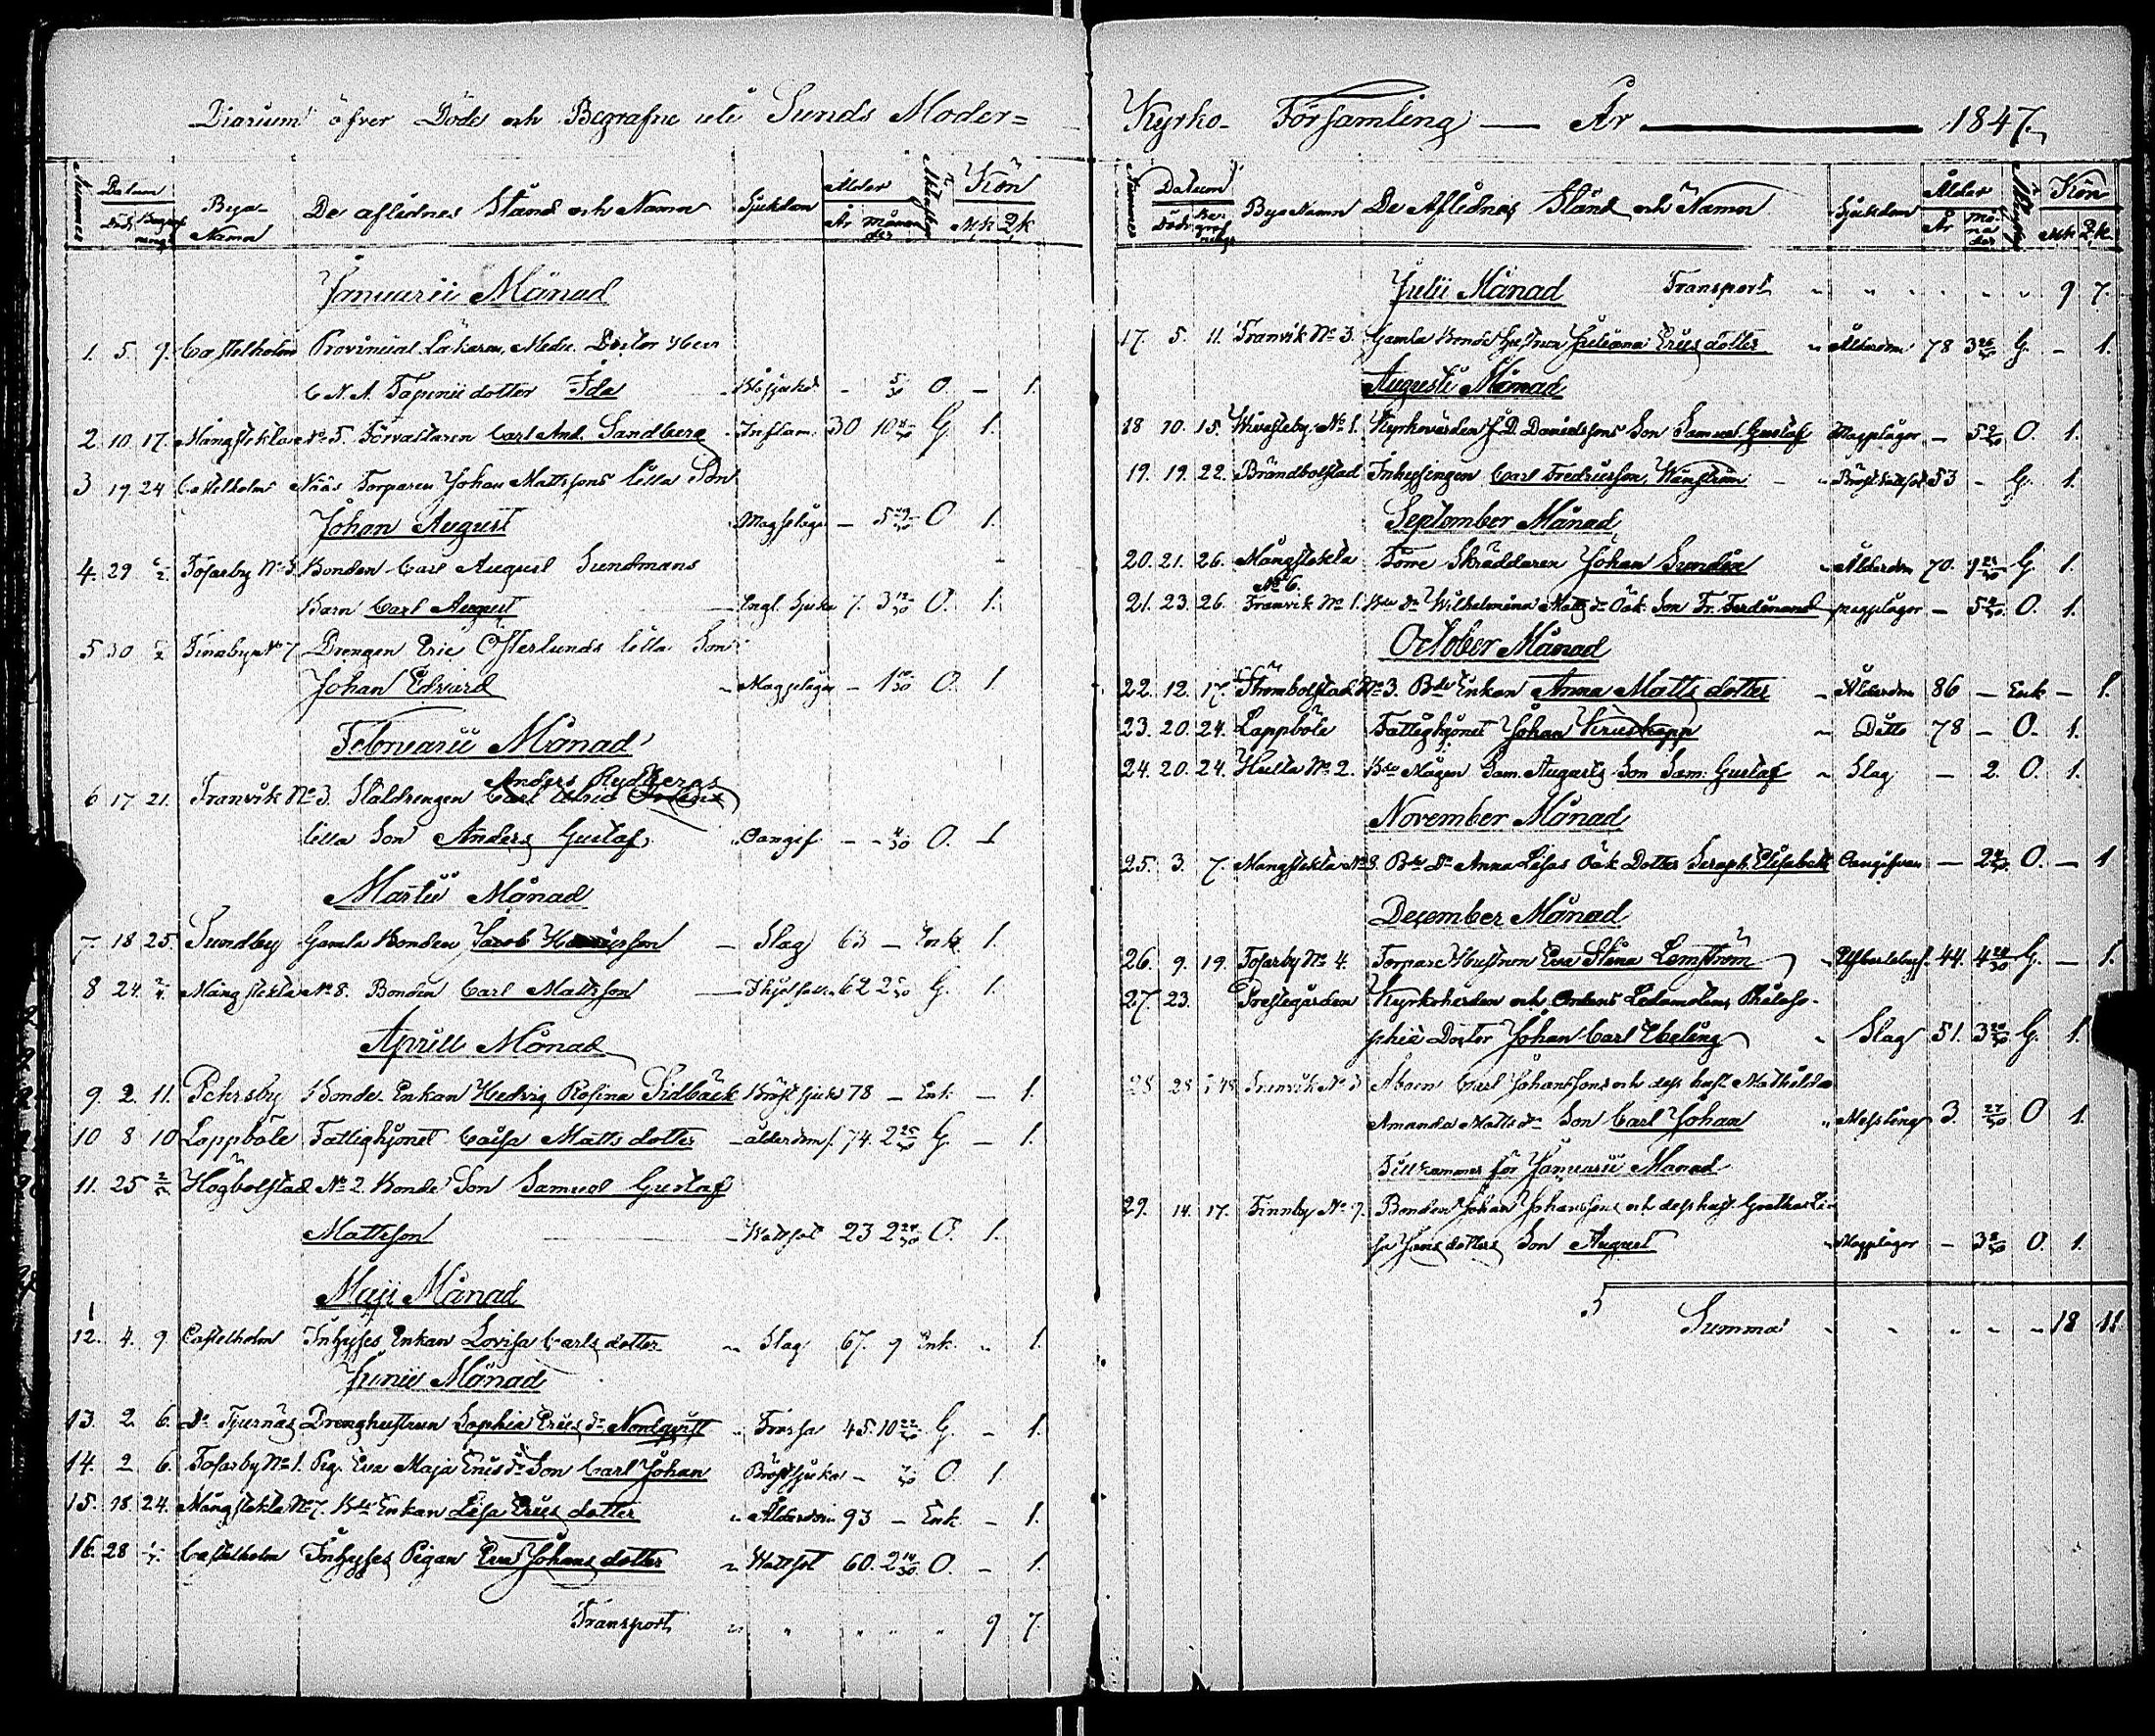 Diarium öfver Döde och Begrafne uti Sunds Moder=
Nummer Datum Bya- Namn De aflednes Stånd och Namn Sjukdom Ålder Kön
Död År Månader Mk Qk
Januarii Månad
1. 5 9. Castelholm Provincial Läkaren, Medic. Doctor
dotter Ida - 5/30 O. - 1.
2 10 17. Mångstekta No 5. Förvaltaren Carl And. Sandberg Inflam. 30 10 G. 1.
3 19 24 Castelholm Näås Torparen Johan Mattssons lilla Son
Johan August Magplågor - 5 O 1.
4. 29 Tosarby No 3. Bonden Carl August Sundmans
Barn Carl August Engl. Sjuka 7. 3 O. 1.
5 30 Finnby No 7 Drengen Eric Österlunds lilla Son
Johan Edvard Magplågor - 1 O. 1.
Februarii Månad
Anders Rydbergs
6 17 21. Tranvik No 3. Staldrengen Carl
lilla Son Anders Gustaf Oangif. - 4/30 O. 1
Martii Månad
7. 18 25. Sundby Gamla Bonden Jacob - Slag 63 - Enk. 1.
8 24. 2/4. Mångstekta No 8. Bonden Carl Mattsson 62 2 G. 1.
Aprill Månad
9. 2. 11. Pehrsby Bonde Enkan Hedvig Rosina Sidbäck Bröstsjuka 78 - Enk. - 1.
10 8 10 Lappböle Fattighjonet Caisa Matts dotter - ålderdom 74. 2 25/30 G. - 1.
11. 25 2/5 Högbolstad No 2. Bonde Son Samuel Gustaf
Mattsson Wattsot 23 2 24/30 O. 1.
Maji Månad
12. 4. 9. Castelholm Inhyses Enkan Lovisa Carls dotter Slag 67. 9 Enk. 1.
Junii Månad
13. 2. 6. Do Tjernäs Drenghustrun Sophia Erics dr Nordqvist Frossa 45. 10 22/30 G. - 1.
14. 2 6. Tosarby No 1. Pig. Eva Maja Erics dr Son Carl Johan Bröstsjuka - O. 1
15. 18. 24. Mångstekta No 7. Bde Enkan Lisa Erics dotter Ålderdom 93 - Enk. - 1.
16. 28 1/7. Castelholm Inhyses Pigan Eva Johans dotter Wattsot 60. 2 14/30 O. - 1.
Transport 9 7.
Kyrko- Församling — År — 1847.
Nummer Datum Bya Namn De Aflednas Stånd och Namn Sjukdom Ålder Kön
Död Begrafnings År Månader Mk Qk
Julii Månad Transport 9 7.
17. 5. 11. Tranvik No 3. Gamla Bonde Hustrun Juliana Erics dotter Ålderdom 78 3 25/30 G. - 1.
Augusti Månad
18 10. 15. Wivastby No 1. Kyrkovärden J. D. Davidssons Son Samuel Gustaf Magplågor - 5 O. 1.
19. 19. 22. Brändbolstad Inhysingen Carl Fredricsson Wänström Bröstvattsot 53 - G. 1.
September Månad
20. 21. 26. Mångstekta Förre Skräddaren Johan Sundin Ålderdom 70. 9 G. 1.
No 6.
21. 23. 26. Tranvik No 1. Bde dr Wilhelmina Matts dr Oäk. Son Fr. Ferdinand Magplågor - 5 O. 1.
October Månad
22. 12. 17. Strömbolstad No 3. Bde Enkan Anna Matts dotter Ålderdom 86 - Enk - 1.
23. 20. 24. Lappböle Fattighjonet Johan Kruskopp Ditto 78 - O. 1.
24. 20. 24. Hulta No 2. Bde Mågen Sam. Augusts Son Sam: Gustaf Slag - 2. O. 1.
November Månad
25. 3. 7. Mångstekta No 8. Bde Dr Anna Lisas Oäk Dotter Seraph. Elisabeth Oangifven - 2 O. - 1
December Månad
26. 9. 19. Tosarby No 4. Torpare Hustrun Eva Stina Lemström 44. 4 28/30 G. - 1.
27. 23. Prestegården Kyrkoherden och Ordens Ledamoten, Philoso-
phiæ Doctor Johan Carl Ebeling Slag 51. 3 G. 1.
28 28 Tranvik No 3 Åboen Carl Johanssons och dess hust. Mathilda
Amanda Matts dr Son Carl Johan Messling 3. 27/30 O 1.
Tillkommer för Januarii Månad
29. 14. 17. Finnby No 9. Bonden Johan Johanssons och dess hust. Greta Li-
sa Jans dotters Son August Magplågor - 3 O. 1.
Summa 18 11.